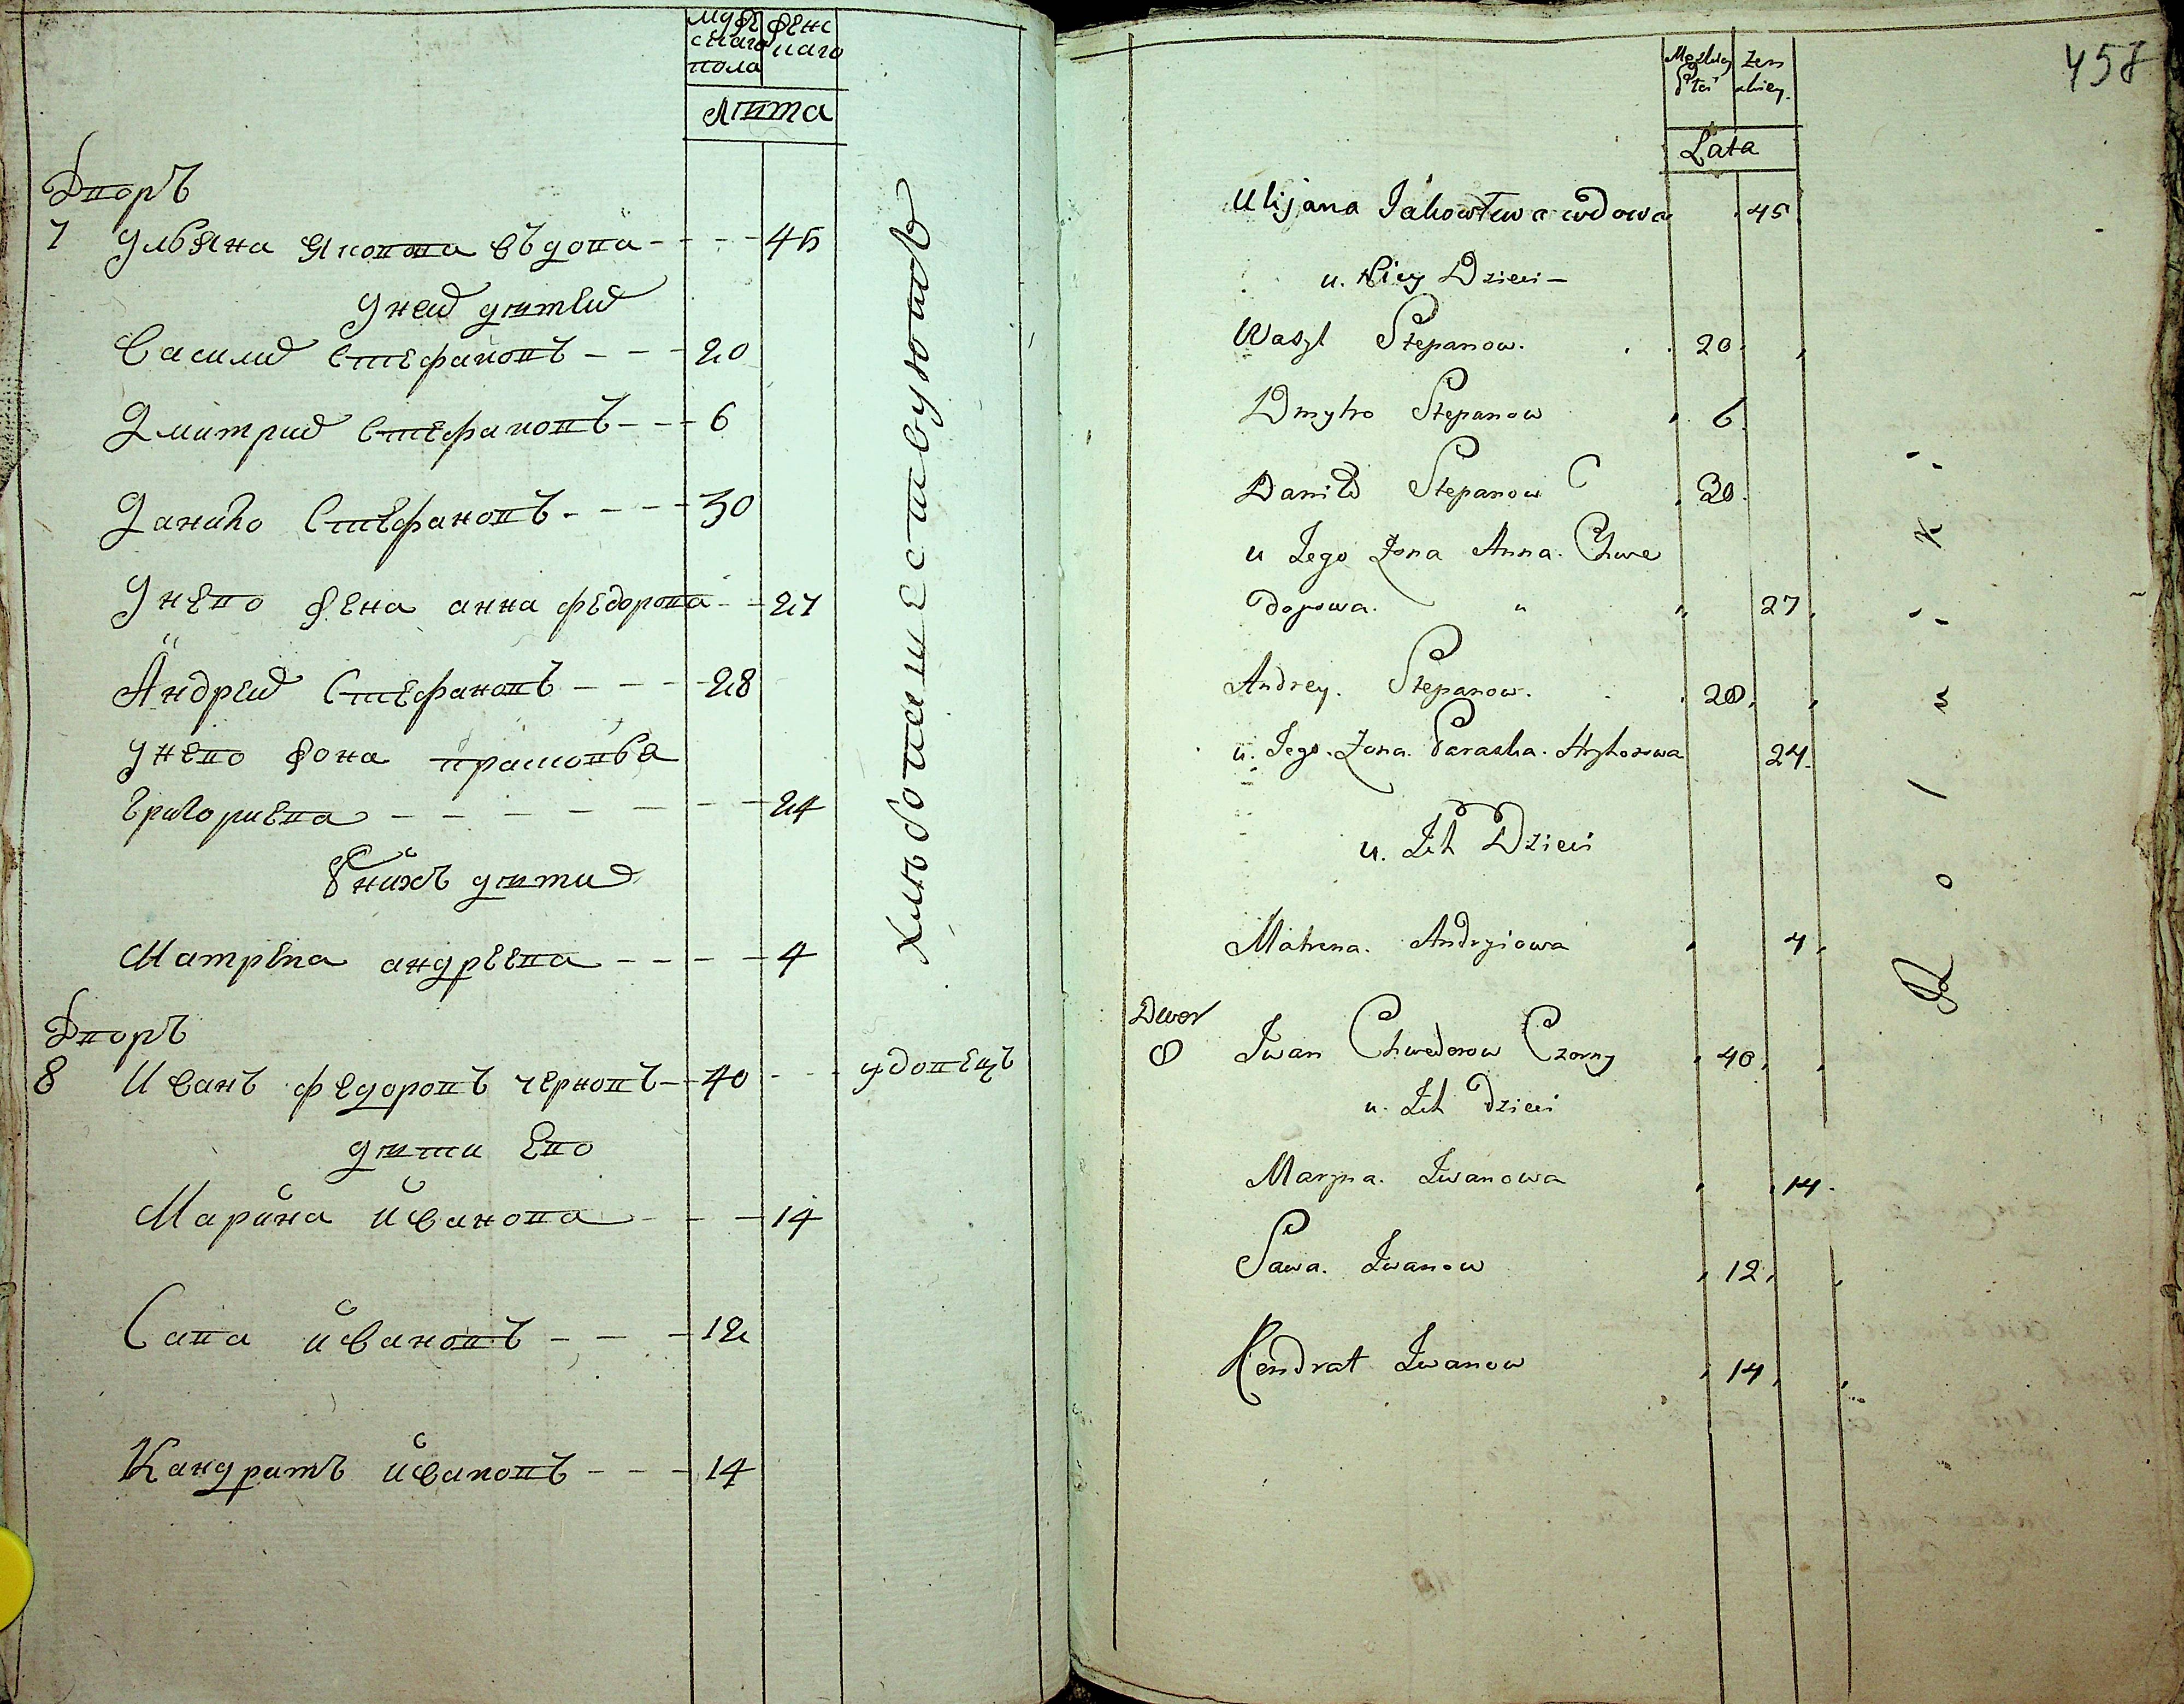 мужескаго пола женскаго
лѣта
Дворъ
7 Ульяна Яковлева въдова 45
у ней дѣтей
Василий Стефановъ 20
Дмитрий Стефановъ 6
Данило Стефановъ 30
у нево жена анна федорова 27
Андрей Стефановъ 28
у нево жона прасковья
григориева 24
у нихъ дѣти
Матрена андреева 4
Дворъ
8 Иванъ федоровъ черновъ 40 удовецъ
дѣти ево
Марина иванова 14
Сава ивановъ 12
Кандратъ ивановъ 14
хлѣбопашествуютъ
458
Męzkiey Płci żenskiey
Lata
Ulijana Jakowlewa wdowa 45
u. Niey Dzieci
Wasyl Stepanow. 20
Dmytro Stepanow 6
Daniło Stepanow 30
u Jego Żona Anna. Chwe
dorowa. 27
Andrey. Stepanow. 28
u. Jego. Żona. Paraska. Hryhorowa 24
u. Ich Dzieci
Matrena. Andryiowa 4
Dwor
8 Iwan Chwedorow Czorny 40
u. Ich Dzieci
Maryna. Iwanowa 14
Sawa. Iwanow 12
Kondrat Iwanow 14